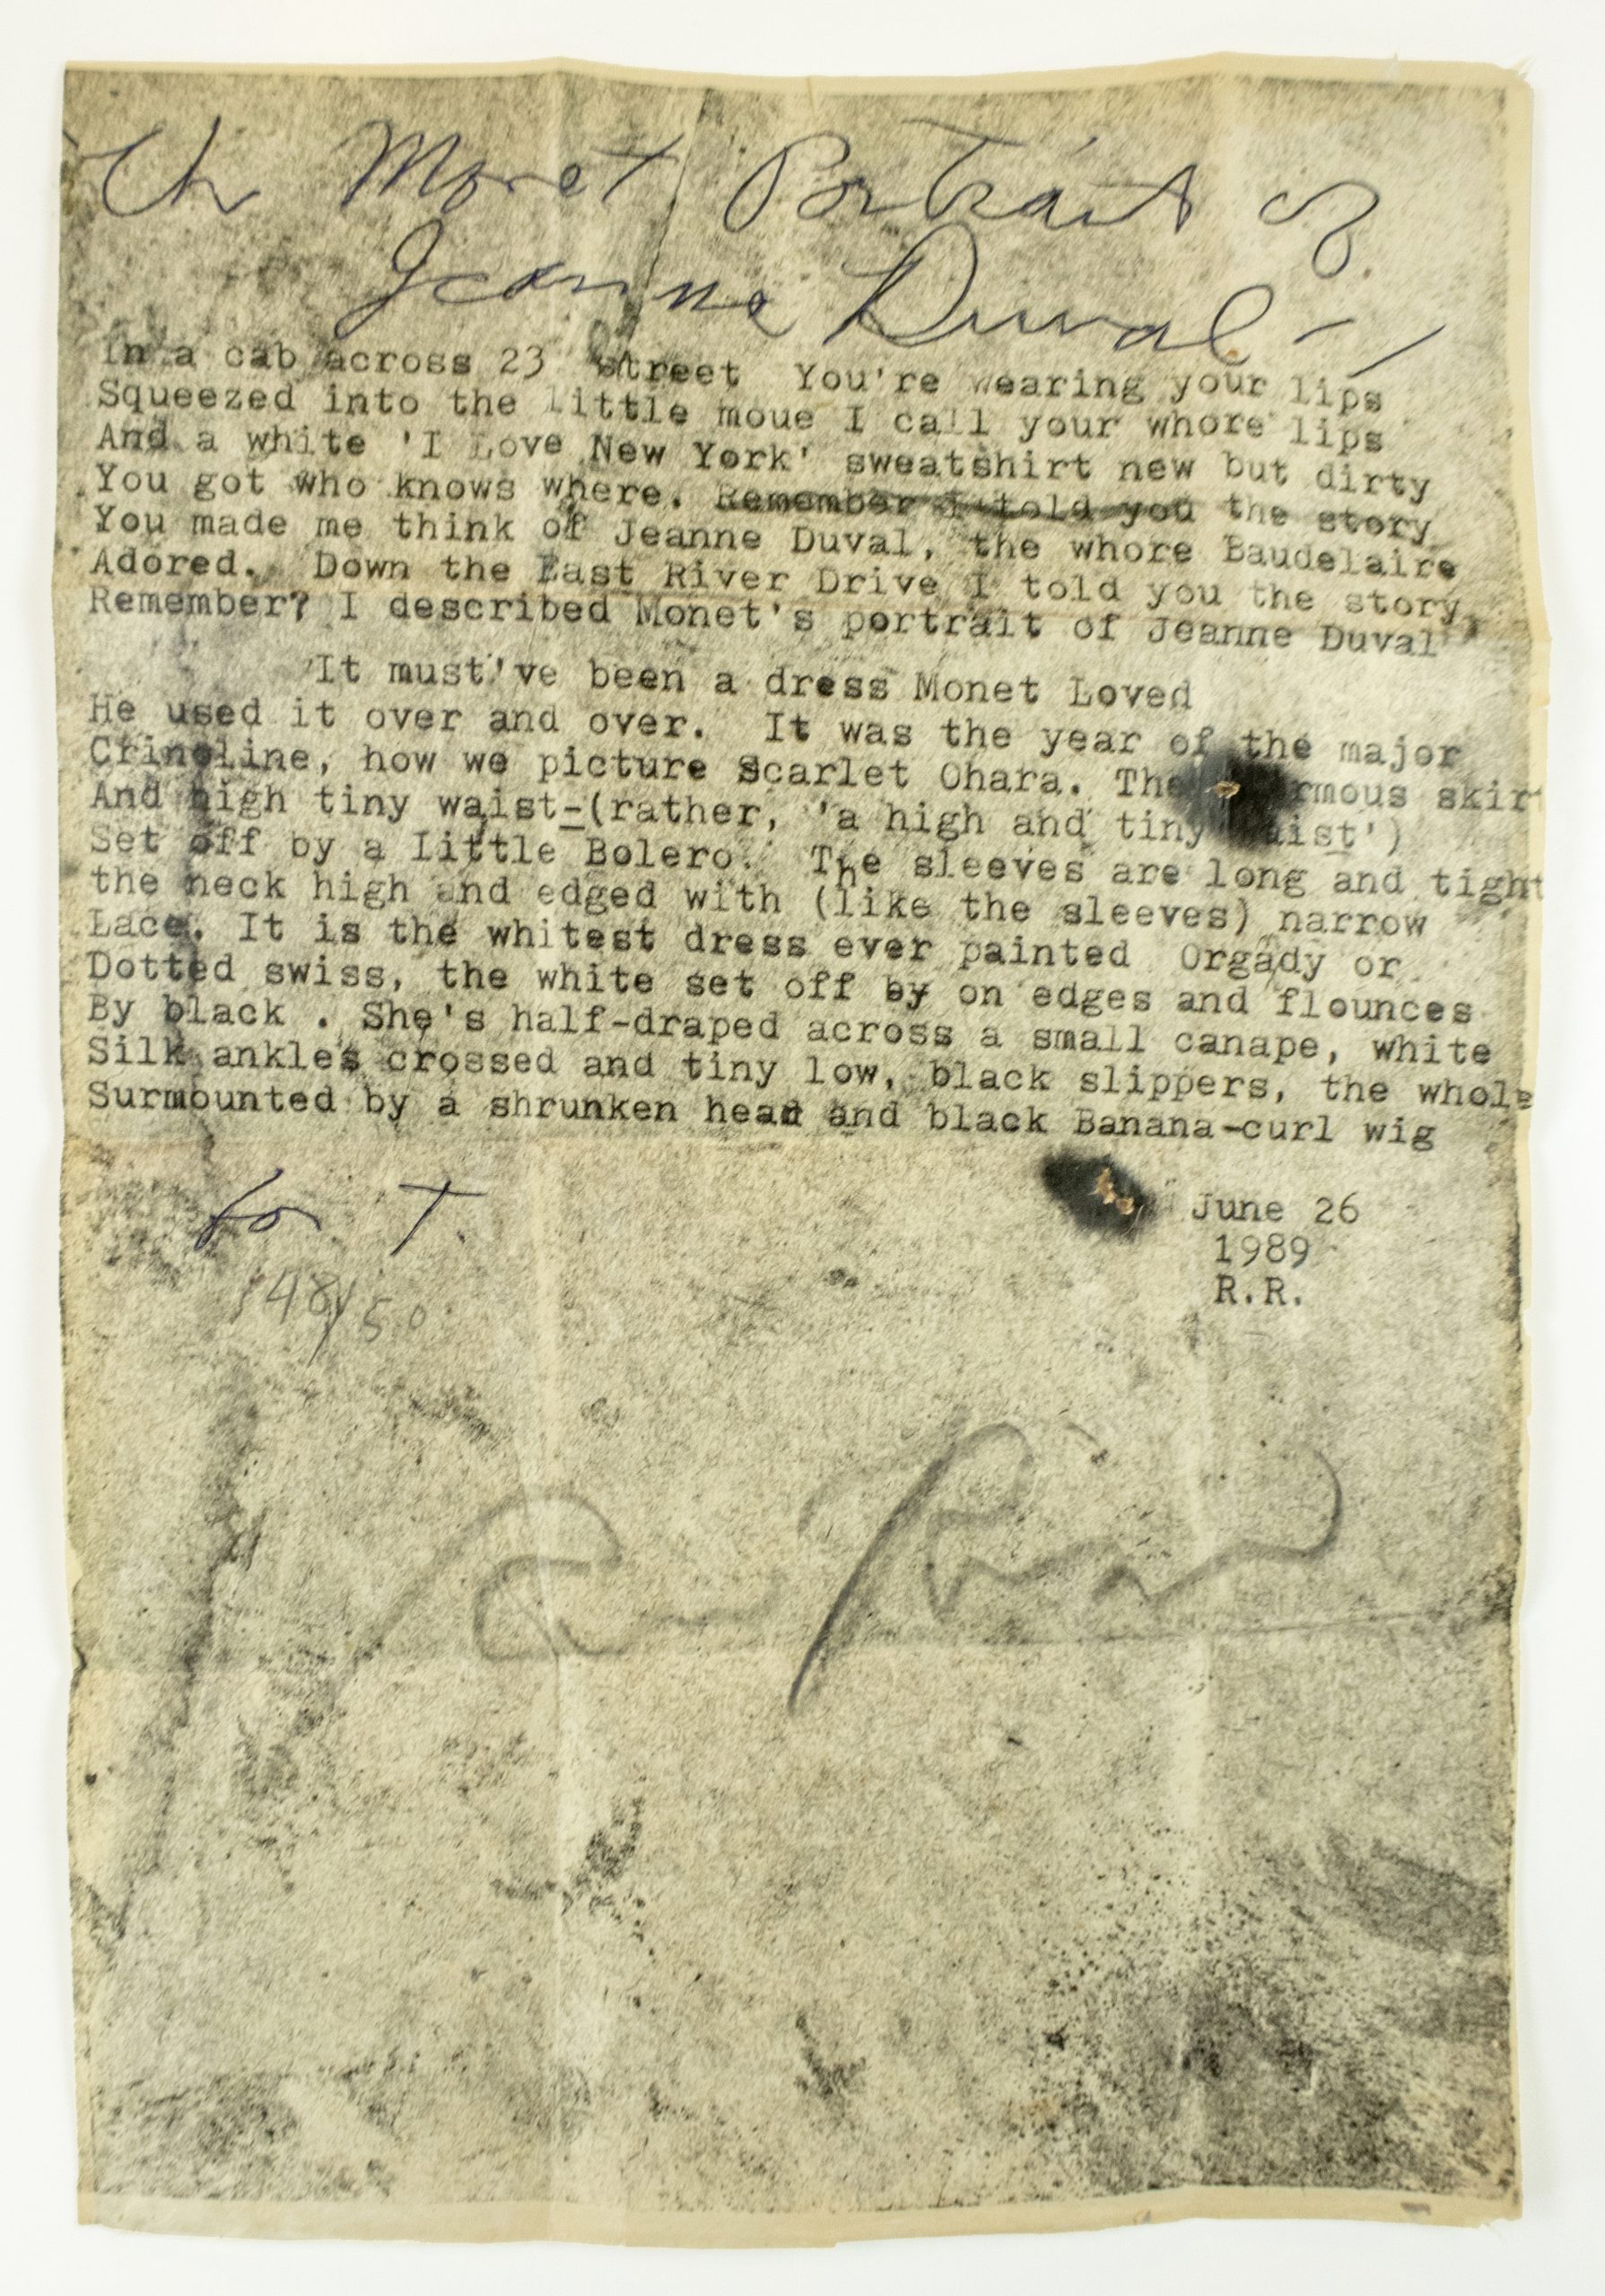 Monet Portrait of
Jeanne Duval —
In a cab across 23 street You're wearing your lips
Squeezed into the little moue I call your whore lips
And a white 'I Love New York' sweatshirt new but dirty
You got who knows where. Remember I told you the story
You made me think of Jeanne Duval, the whore Baudelaire
Adored. Down the East River Drive I told you the story
Remember? I described Monet's portrait of Jeanne Duval
It must've been a dress Monet Loved
He used it over and over. It was the year of the major
Crinoline, how we picture Scarlet Ohara. The rmous skir
And high tiny waist-(rather, 'a high and tiny aist')
Set off by a Little Bolero. The sleeves are long and tight
the neck high and edged with (like the sleeves) narrow
Lace. It is the whitest dress ever painted Orgady or
Dotted swiss, the white set off by on edges and flounces
By black . She's half-draped across a small canape, white
Silk ankles crossed and tiny low, black slippers, the whole
Surmounted by a shrunken head and black Banana-curl wig
for T.
June 26
1989
R.R.
48/50